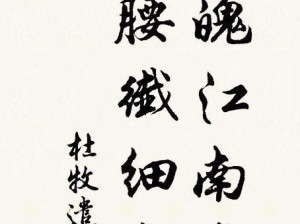 魄江南
腰纖細
杜牧遣